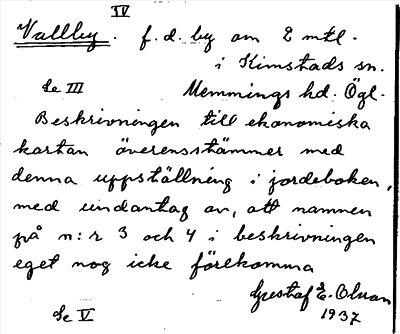 IV
Vallby. f. d. by om 2 mtl.
i Kimstads sn.
Se III Memmings hd. Ögl.
Beskrivningen till ekonomiska
kartan överensstämmer med
denna uppställning i jordeboken,
med undantag av, att namnen
på n:r 3 och 4 i beskrivningen
eget nog icke förekomma
Gustaf E. Olson
1937
Se V